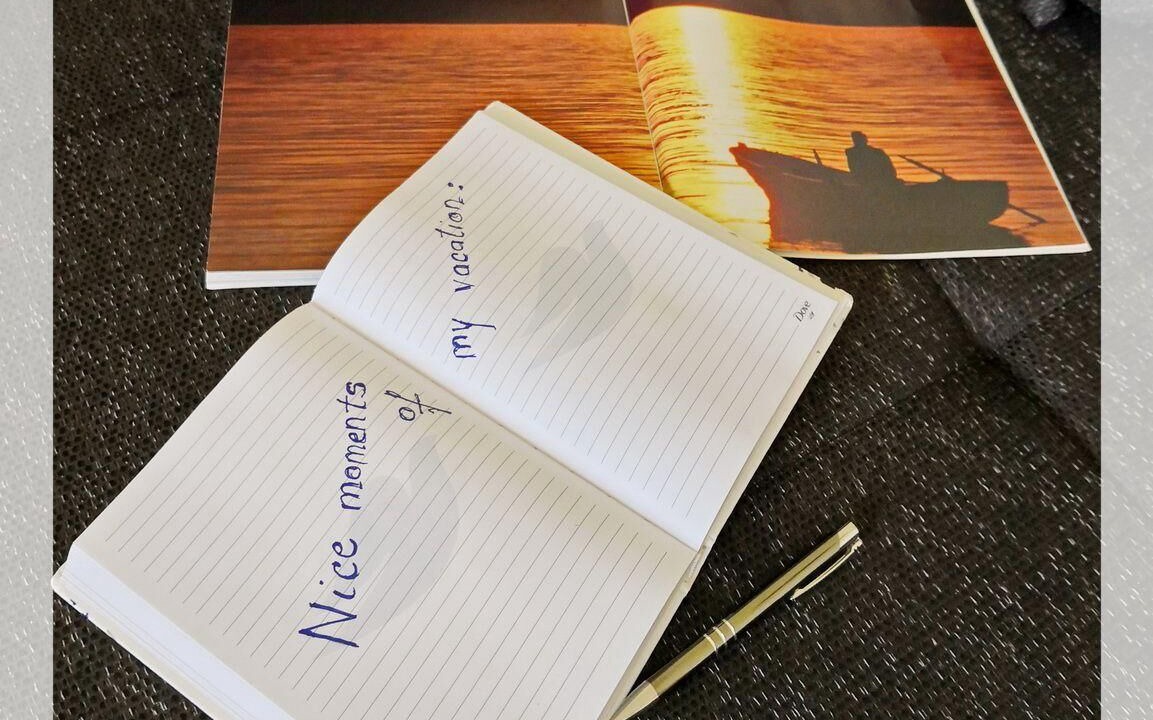 Nice moments
of
my vacation:
Dove